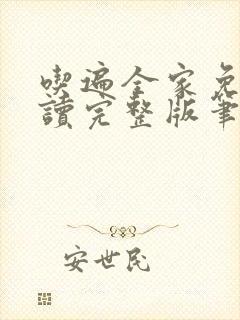 喫遍全家免
讀完整版筆
安世民